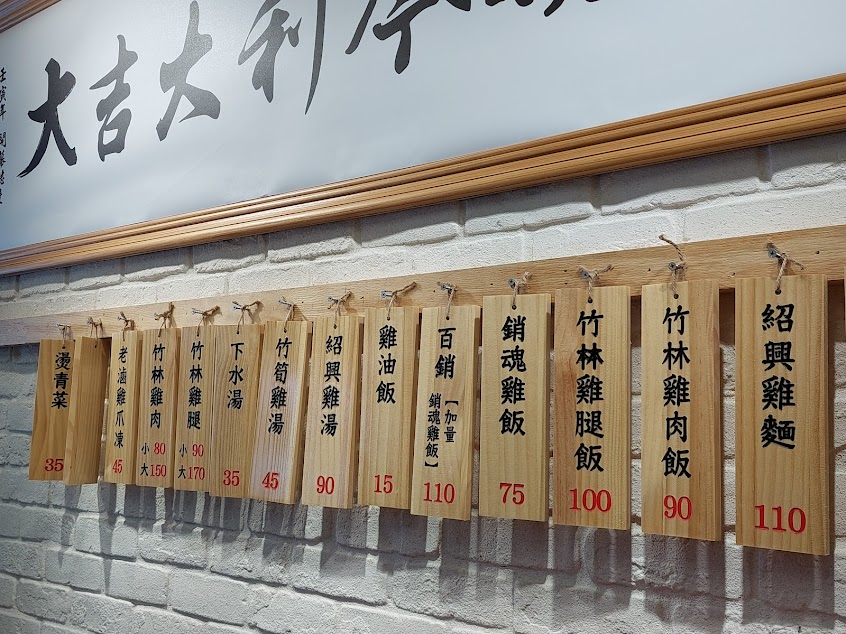 大吉大利
紹興雞麵
110
竹林雞肉飯
90
竹林雞腿飯
100
銷魂雞飯
75
百銷
【加量
銷魂雞飯】
110
雞油飯
15
紹興雞湯
90
竹筍雞湯
45
下水湯
35
竹林雞腿
小 90
大 170
竹林雞肉
小 80
大 150
老滷雞爪凍
45
燙青菜
35